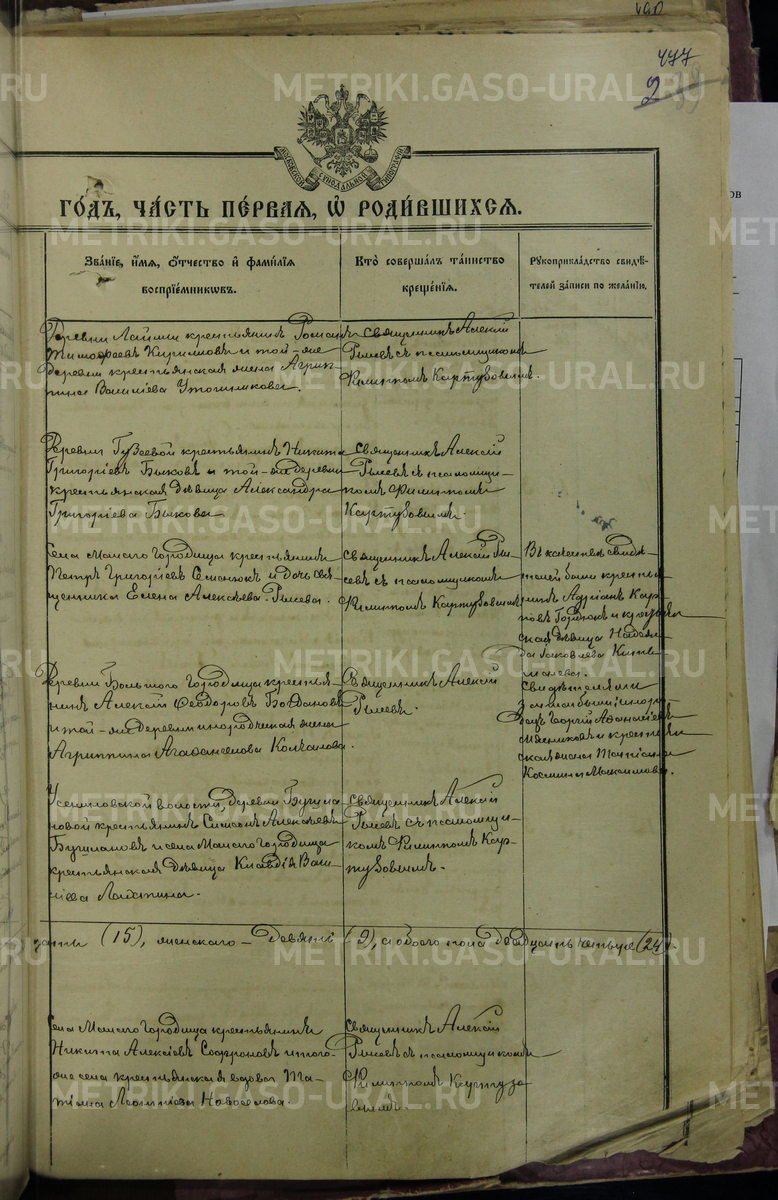 490
477
METRIKI.GASO-URAL.RU
МОСКОВСКОЙ СѴНОДАЛЬНОЙ ТИПОГРАФІИ
ГО́ДЪ, ЧА́СТЬ ПЕ́РВАЯ, Ѡ҆ РОДИ́ВШИХСЯ.
Зва́нїе, и҆́мѧ, ѻ҆́тчество и҆ фамѝлїѧ
воспрїе́мникѡвъ.
Кто̀ соверша́лъ та́инство
креще́нїѧ.
Рꙋкоприкла́дство свидѣ́-
телей за́писи по жела́нїю.
Деревни Лаймы крестьянинъ Романъ
Тимофеевъ Кирилловъ и той-же
деревни крестьянская жена Агрип-
пина Васильева Утошкинова.
Священникъ Алексій
Рысевъ съ псаломщикомъ
Филиппомъ Картузовымъ.
Деревни Гузеевой крестьянинъ Никита
Григорьевъ Быковъ и той-же деревни
крестьянская дѣвица Александра
Григорьева Быкова
Священникъ Алексій
Рысевъ съ псаломщи-
комъ Филиппомъ
Картузовымъ.
Села Малаго Городища крестьянинъ
Петръ Григорьевъ и дочь свя-
щенника Елена Алексѣева Рысева.
Священникъ Алексій Ры-
севъ съ псаломщикомъ
Филиппомъ Картузовымъ
Въ качествѣ свидѣ-
телей были крестья-
нинъ Адріанъ Кар-
повъ и крестьян-
ская дѣвица Надеж-
да Яковлева
Деревни Большого Городища крестья-
нинъ Алексѣй Феодоровъ Богдановъ
и той-же деревни инородческая жена
Агриппина Колчанова.
Священникъ Алексій
Рысевъ.
Свидѣтелями
записи были: инород-
ецъ Георгій Афанасьевъ
Мясниковъ и крестьян-
ская жена Татіана
Космина Максимова.
волости, деревни
крестьянинъ Симеонъ Алексѣевъ
и села Малаго Городища
крестьянская дѣвица Клавдія Васи-
льева
Священникъ Алексій
Рысевъ съ псаломщи-
комъ Филиппомъ Кар-
тузовымъ.
дцать (15), женскаго - девять (9), а обоего пола двадцать четыре (24).
Села Малаго Городища крестьянинъ
Никита Алексѣевъ Софроновъ и того-
же села крестьянская вдова Та-
тіана Леонтьева Новоселова.
Священникъ Алексій
Рысевъ съ псаломщикомъ
Филиппомъ Картузо-
вымъ.